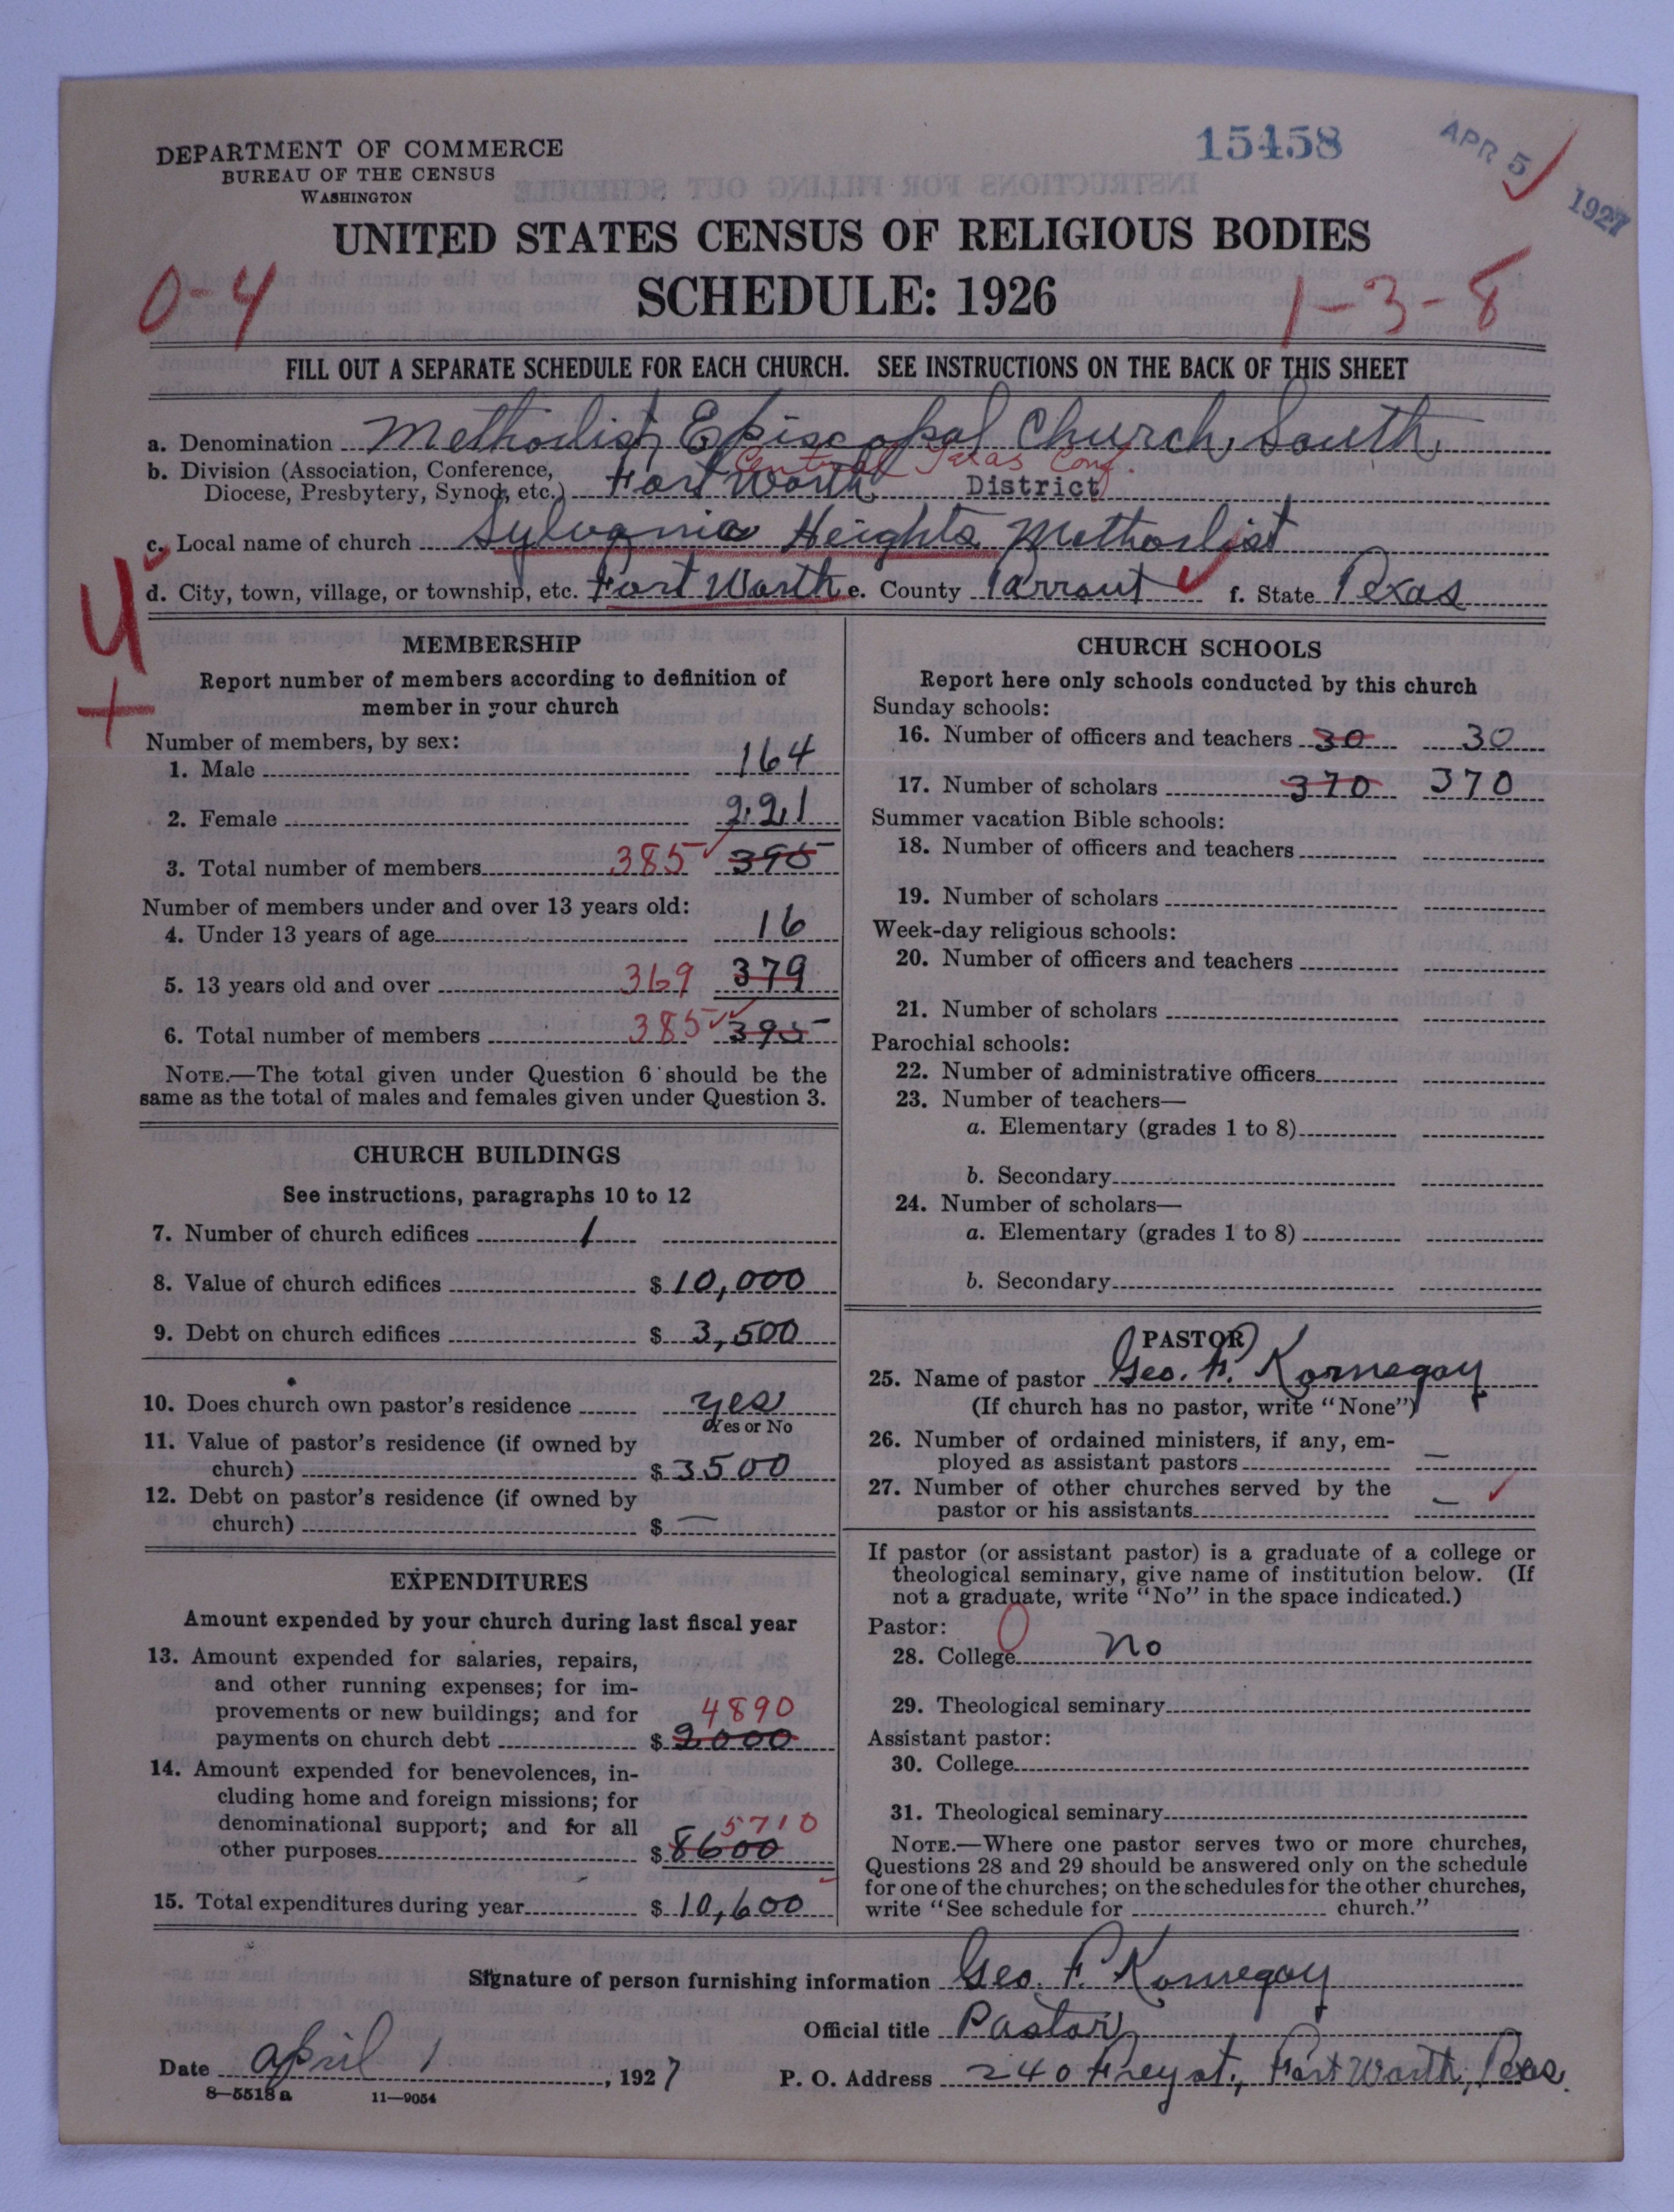 15458
APR 5 1927
DEPARTMENT OF COMMERCE
BUREAU OF THE CENSUS
WASHINGTON
UNITED STATES CENSUS OF RELIGIOUS BODIES
SCHEDULE: 1926
0-4
1-3-8
FILL OUT A SEPARATE SCHEDULE FOR EACH CHURCH. SEE INSTRUCTIONS ON THE BACK OF THIS SHEET
a. Denomination Methodist Episcopal Church, South
Central Texas Conf.
b. Division (Association, Conference,
Diocese, Presbytery, Synod, etc.) Fort Worth District
c. Local name of church Sylvania Heights Methodist
d. City, town, village, or township, etc. Fort Worth e. County Tarrant f. State Texas
4
+
MEMBERSHIP
Report number of members according to definition of
member in your church
Number of members, by sex:
1. Male 164
2. Female 221
3. Total number of members 385 395
Number of members under and over 13 years old:
4. Under 13 years of age 16
5. 13 years old and over 369 379
6. Total number of members 385 395
NOTE.—The total given under Question 6 should be the
same as the total of males and females given under Question 3.
CHURCH BUILDINGS
See instructions, paragraphs 10 to 12
7. Number of church edifices 1
8. Value of church edifices $ 10,000
9. Debt on church edifices $ 3,500
10. Does church own pastor's residence yes
Yes or No
11. Value of pastor's residence (if owned by
church) $ 3500
12. Debt on pastor's residence (if owned by
church) $ —
EXPENDITURES
Amount expended by your church during last fiscal year
13. Amount expended for salaries, repairs,
and other running expenses; for im-
provements or new buildings; and for 4890
payments on church debt $ 2000
14. Amount expended for benevolences, in-
cluding home and foreign missions; for
denominational support; and for all 5710
other purposes $ 8600
15. Total expenditures during year $ 10,600
CHURCH SCHOOLS
Report here only schools conducted by this church
Sunday schools:
16. Number of officers and teachers 30 30
17. Number of scholars 370 370
Summer vacation Bible schools:
18. Number of officers and teachers
19. Number of scholars
Week-day religious schools:
20. Number of officers and teachers
21. Number of scholars
Parochial schools:
22. Number of administrative officers
23. Number of teachers—
a. Elementary (grades 1 to 8)
b. Secondary
24. Number of scholars—
a. Elementary (grades 1 to 8)
b. Secondary
PASTOR
25. Name of pastor Geo. F. Kornegay
(If church has no pastor, write "None")
26. Number of ordained ministers, if any, em-
ployed as assistant pastors —
27. Number of other churches served by the
pastor or his assistants —
If pastor (or assistant pastor) is a graduate of a college or
theological seminary, give name of institution below. (If
not a graduate, write "No" in the space indicated.)
Pastor: 0
28. College No
29. Theological seminary
Assistant pastor:
30. College
31. Theological seminary
NOTE.—Where one pastor serves two or more churches,
Questions 28 and 29 should be answered only on the schedule
for one of the churches; on the schedules for the other churches,
write "See schedule for church."
Signature of person furnishing information Geo. F. Kornegay
Official title Pastor
Date April 1, 1927
P. O. Address 240 Frey st., Fort Worth, Texas.
8—5518 a 11—9054